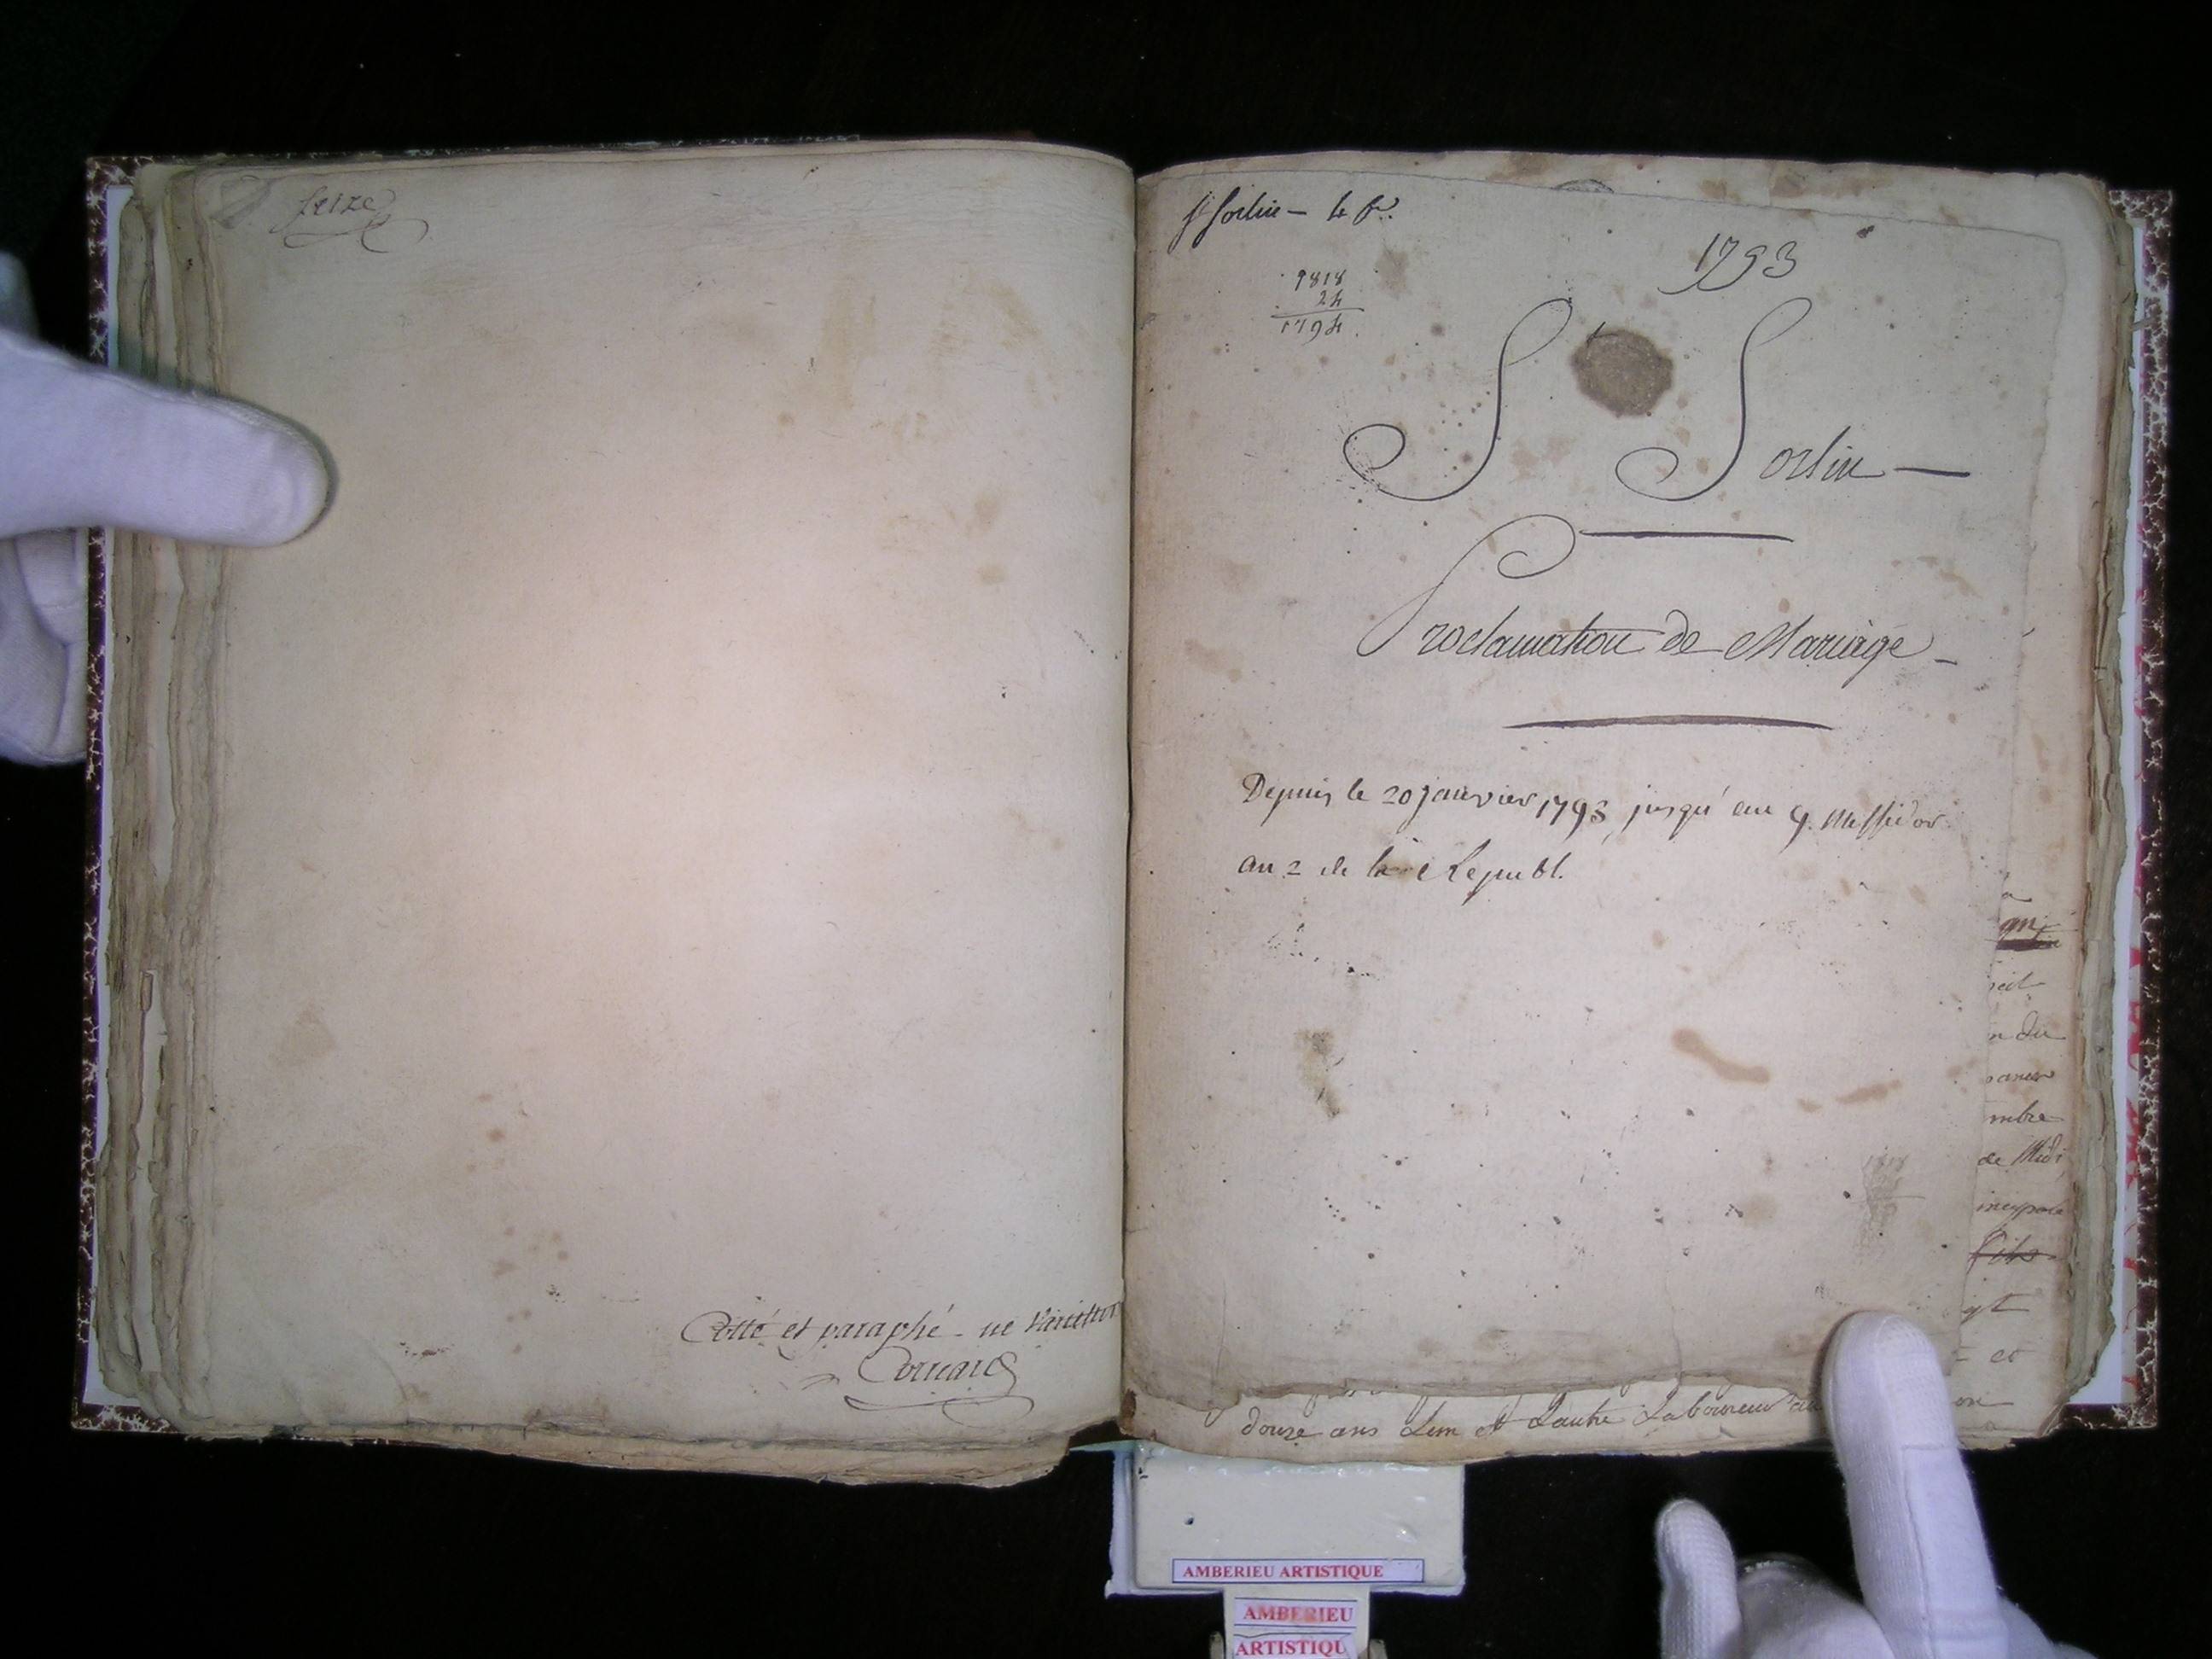 seize
Cotté et paraphé - ne varietur
St Sorlin -
1793
1818
24
1794
S S orlin -
Proclamation de Mariage -
Depuis le 20 janvier 1793, jusqu'au 9. Messidor
an 2 de la Republ.
du
mbre
de Midi
et
douze ans Lun et Lautre Laboureur
AMBERIEU ARTISTIQUE
AMBERIEU
ARTISTIQU